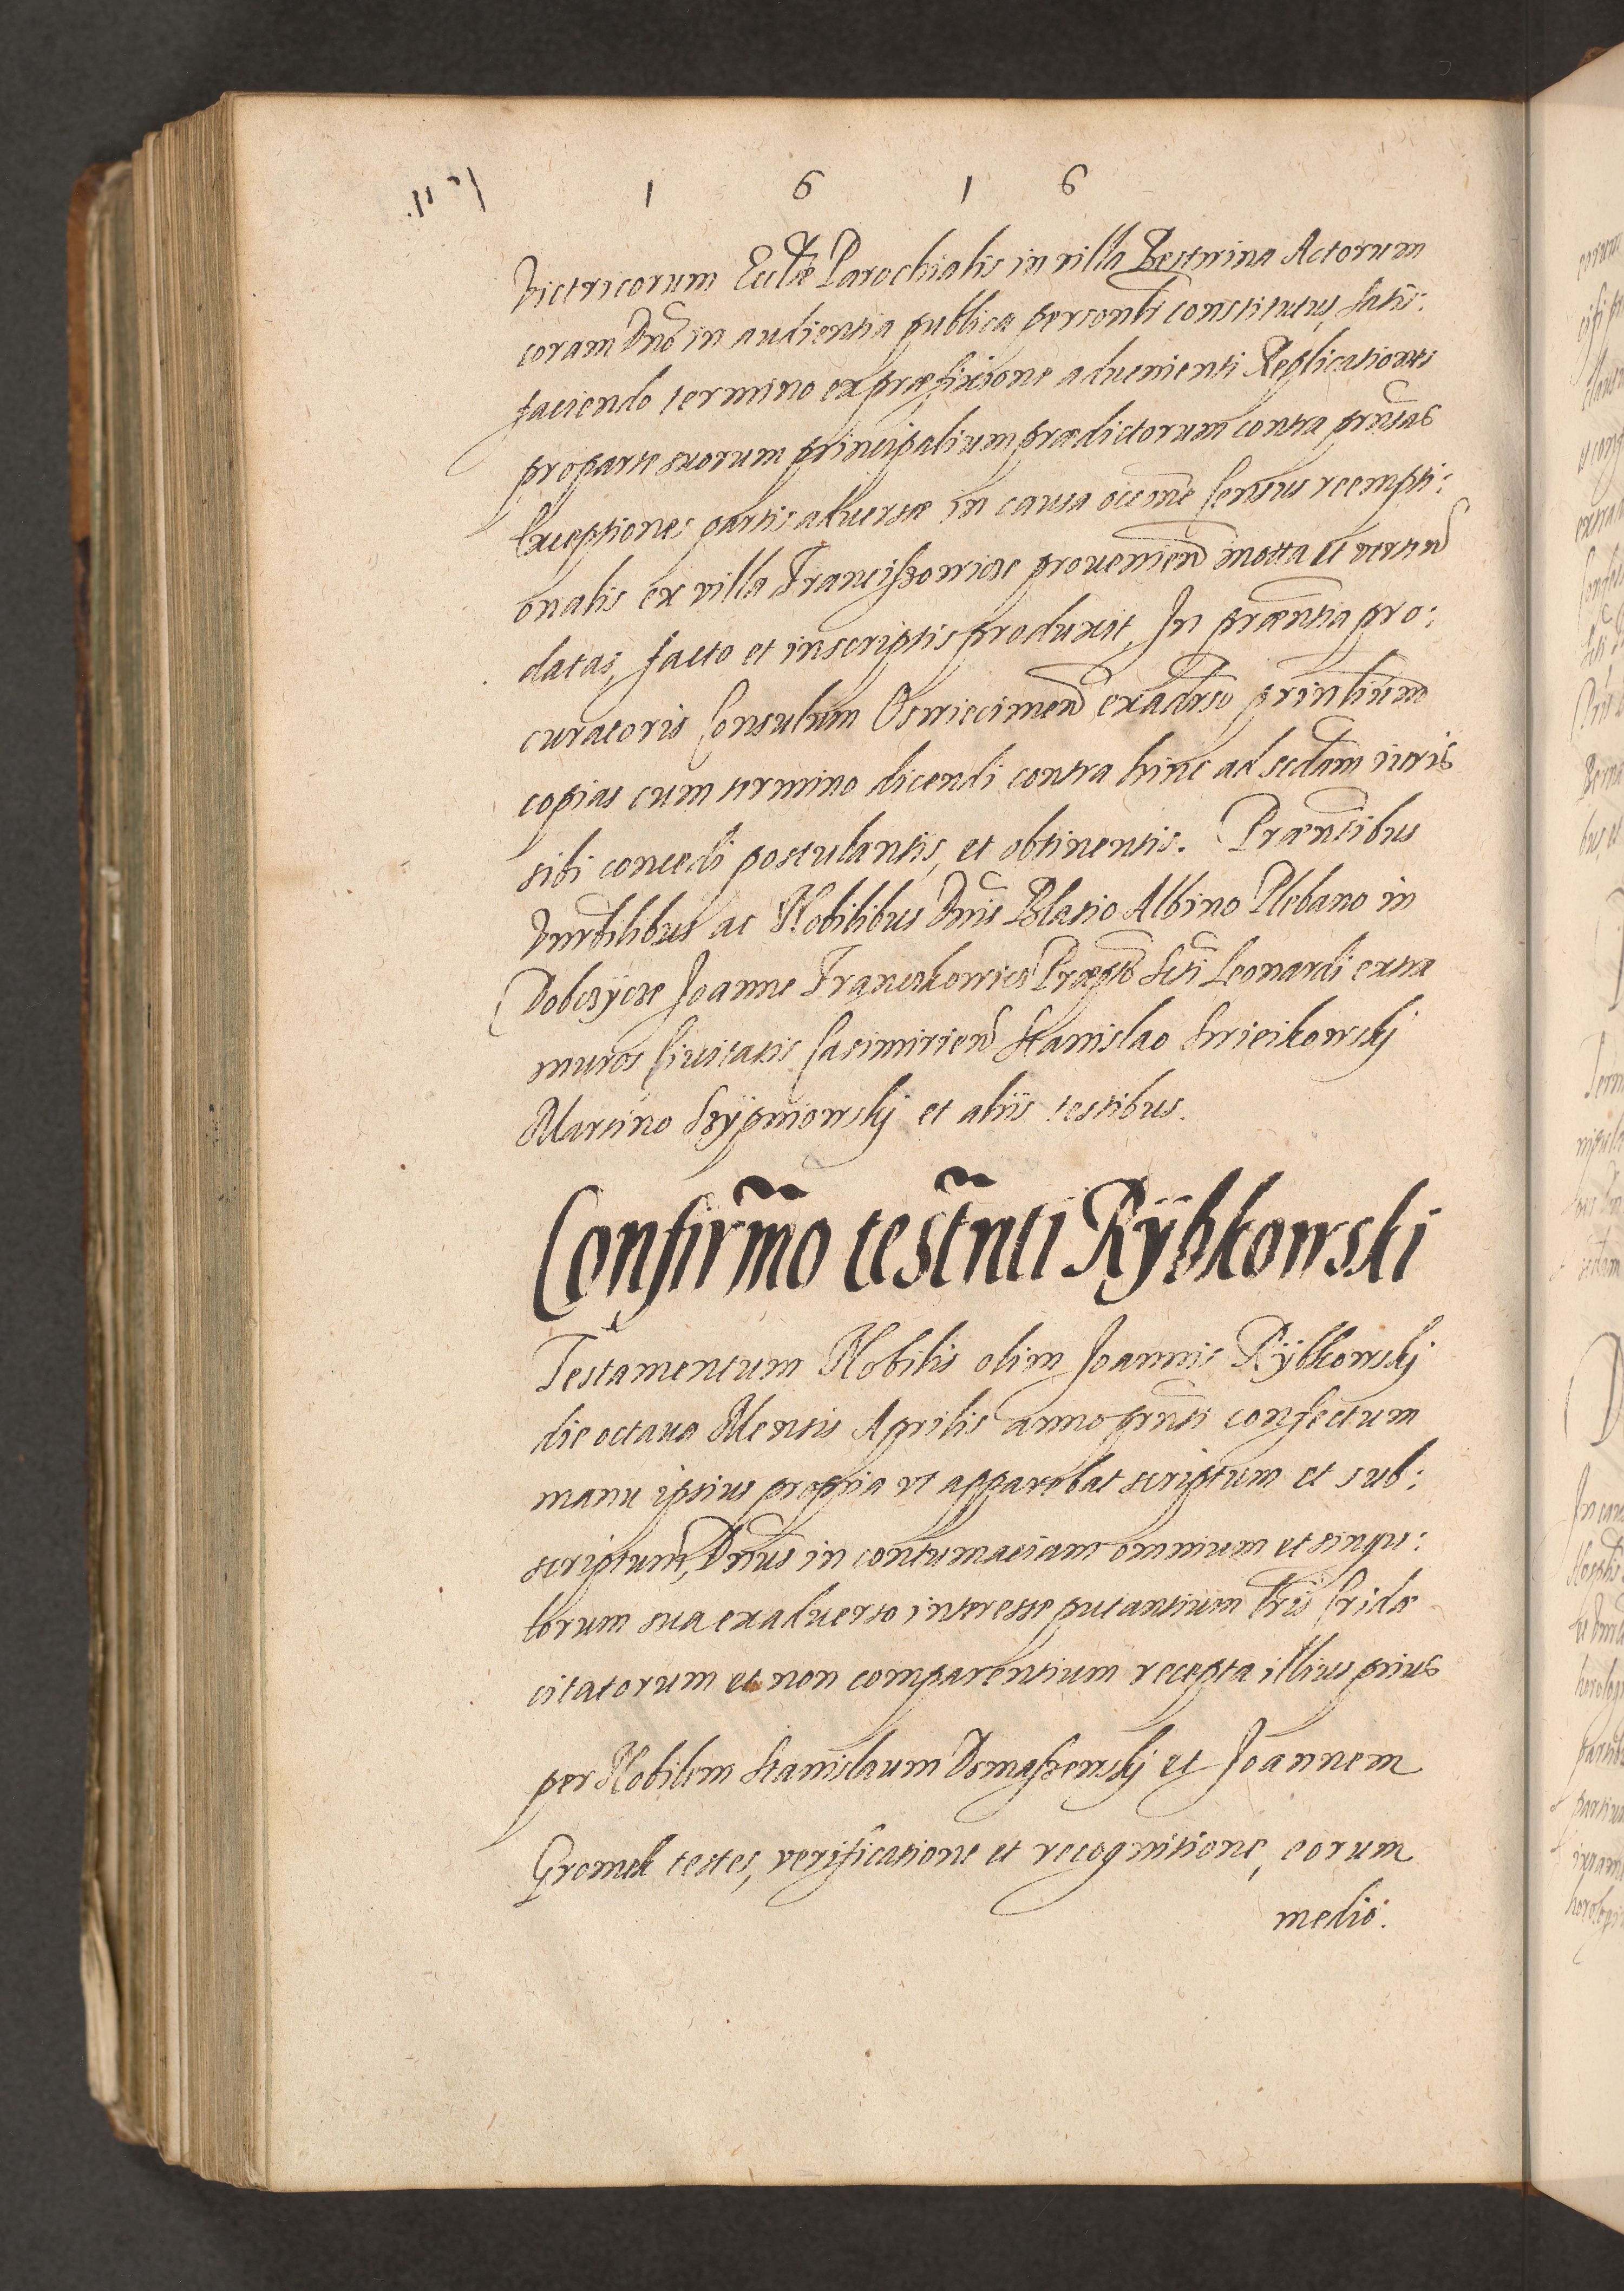 1 6 1 6
Victricorum Eccliæ Parochialis in villa Bestwina Actorum
coram Dno in audientia publica personlr constitutus, satis:
faciendo termino ex præfixione aduenienti Replicationes
pro parte suorum principalium prædictorum contra prnsas
Exceptiones partis aduersæ in caūsa occne census reempti:
onalis ex villa Franciszowicze prouenien mota et verten
datas, facto et in scriptis produxit, In præntia pro:
curatoris Consulum Oswiecimen ex aduerso prinlium
copias cum termino dicendi contra hinc ad secdam iuris
sibi concedi postulantis, et obtinentis. Præntibus
Vnrabilibus ac Nobilibus Dnis Blasio Albino Plebano in
Dobczÿcze Joanne Franckowicz Præpto Scti Leonardi extra
muros Ciuitatis Casimirien Stanislao Swieikowskj
Martino Szÿpniowskj et aliis testibus.
Confirmo testnti Rÿbkowski
Testamentum Nobilis olim Joannis Rÿbkowskj
die octaua Mensis Aprilis anno prnti confectum
manu ipsius propria vt apparebat scriptum et sub:
scriptum, Dnus in contumaciam omnium et singu:
lorum sua ex aduerso interesse putantium lris Cridæ
citatorum et non comparentium recepta illius prius
per Nobilem Stanislaum Domaszewskj et Joannem
Gromek testes, verificatione et recognitione, eorum
medio.